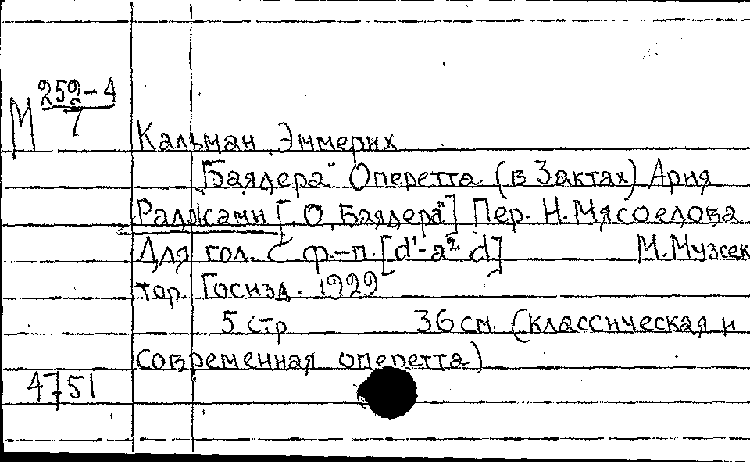 М 252-4/7
Кальман, Эммерих
„Баядера" Оперетта. (в 3 актах) Ария
Раджами [„О, Баядера"] Пер. Н. Мясоедова
Для гол. с ф.-п. [d¹-a² d] М. Музсек
тор. Госизд. 1929
5 стр 36 см. (классическая и
современная оперетта)
4751